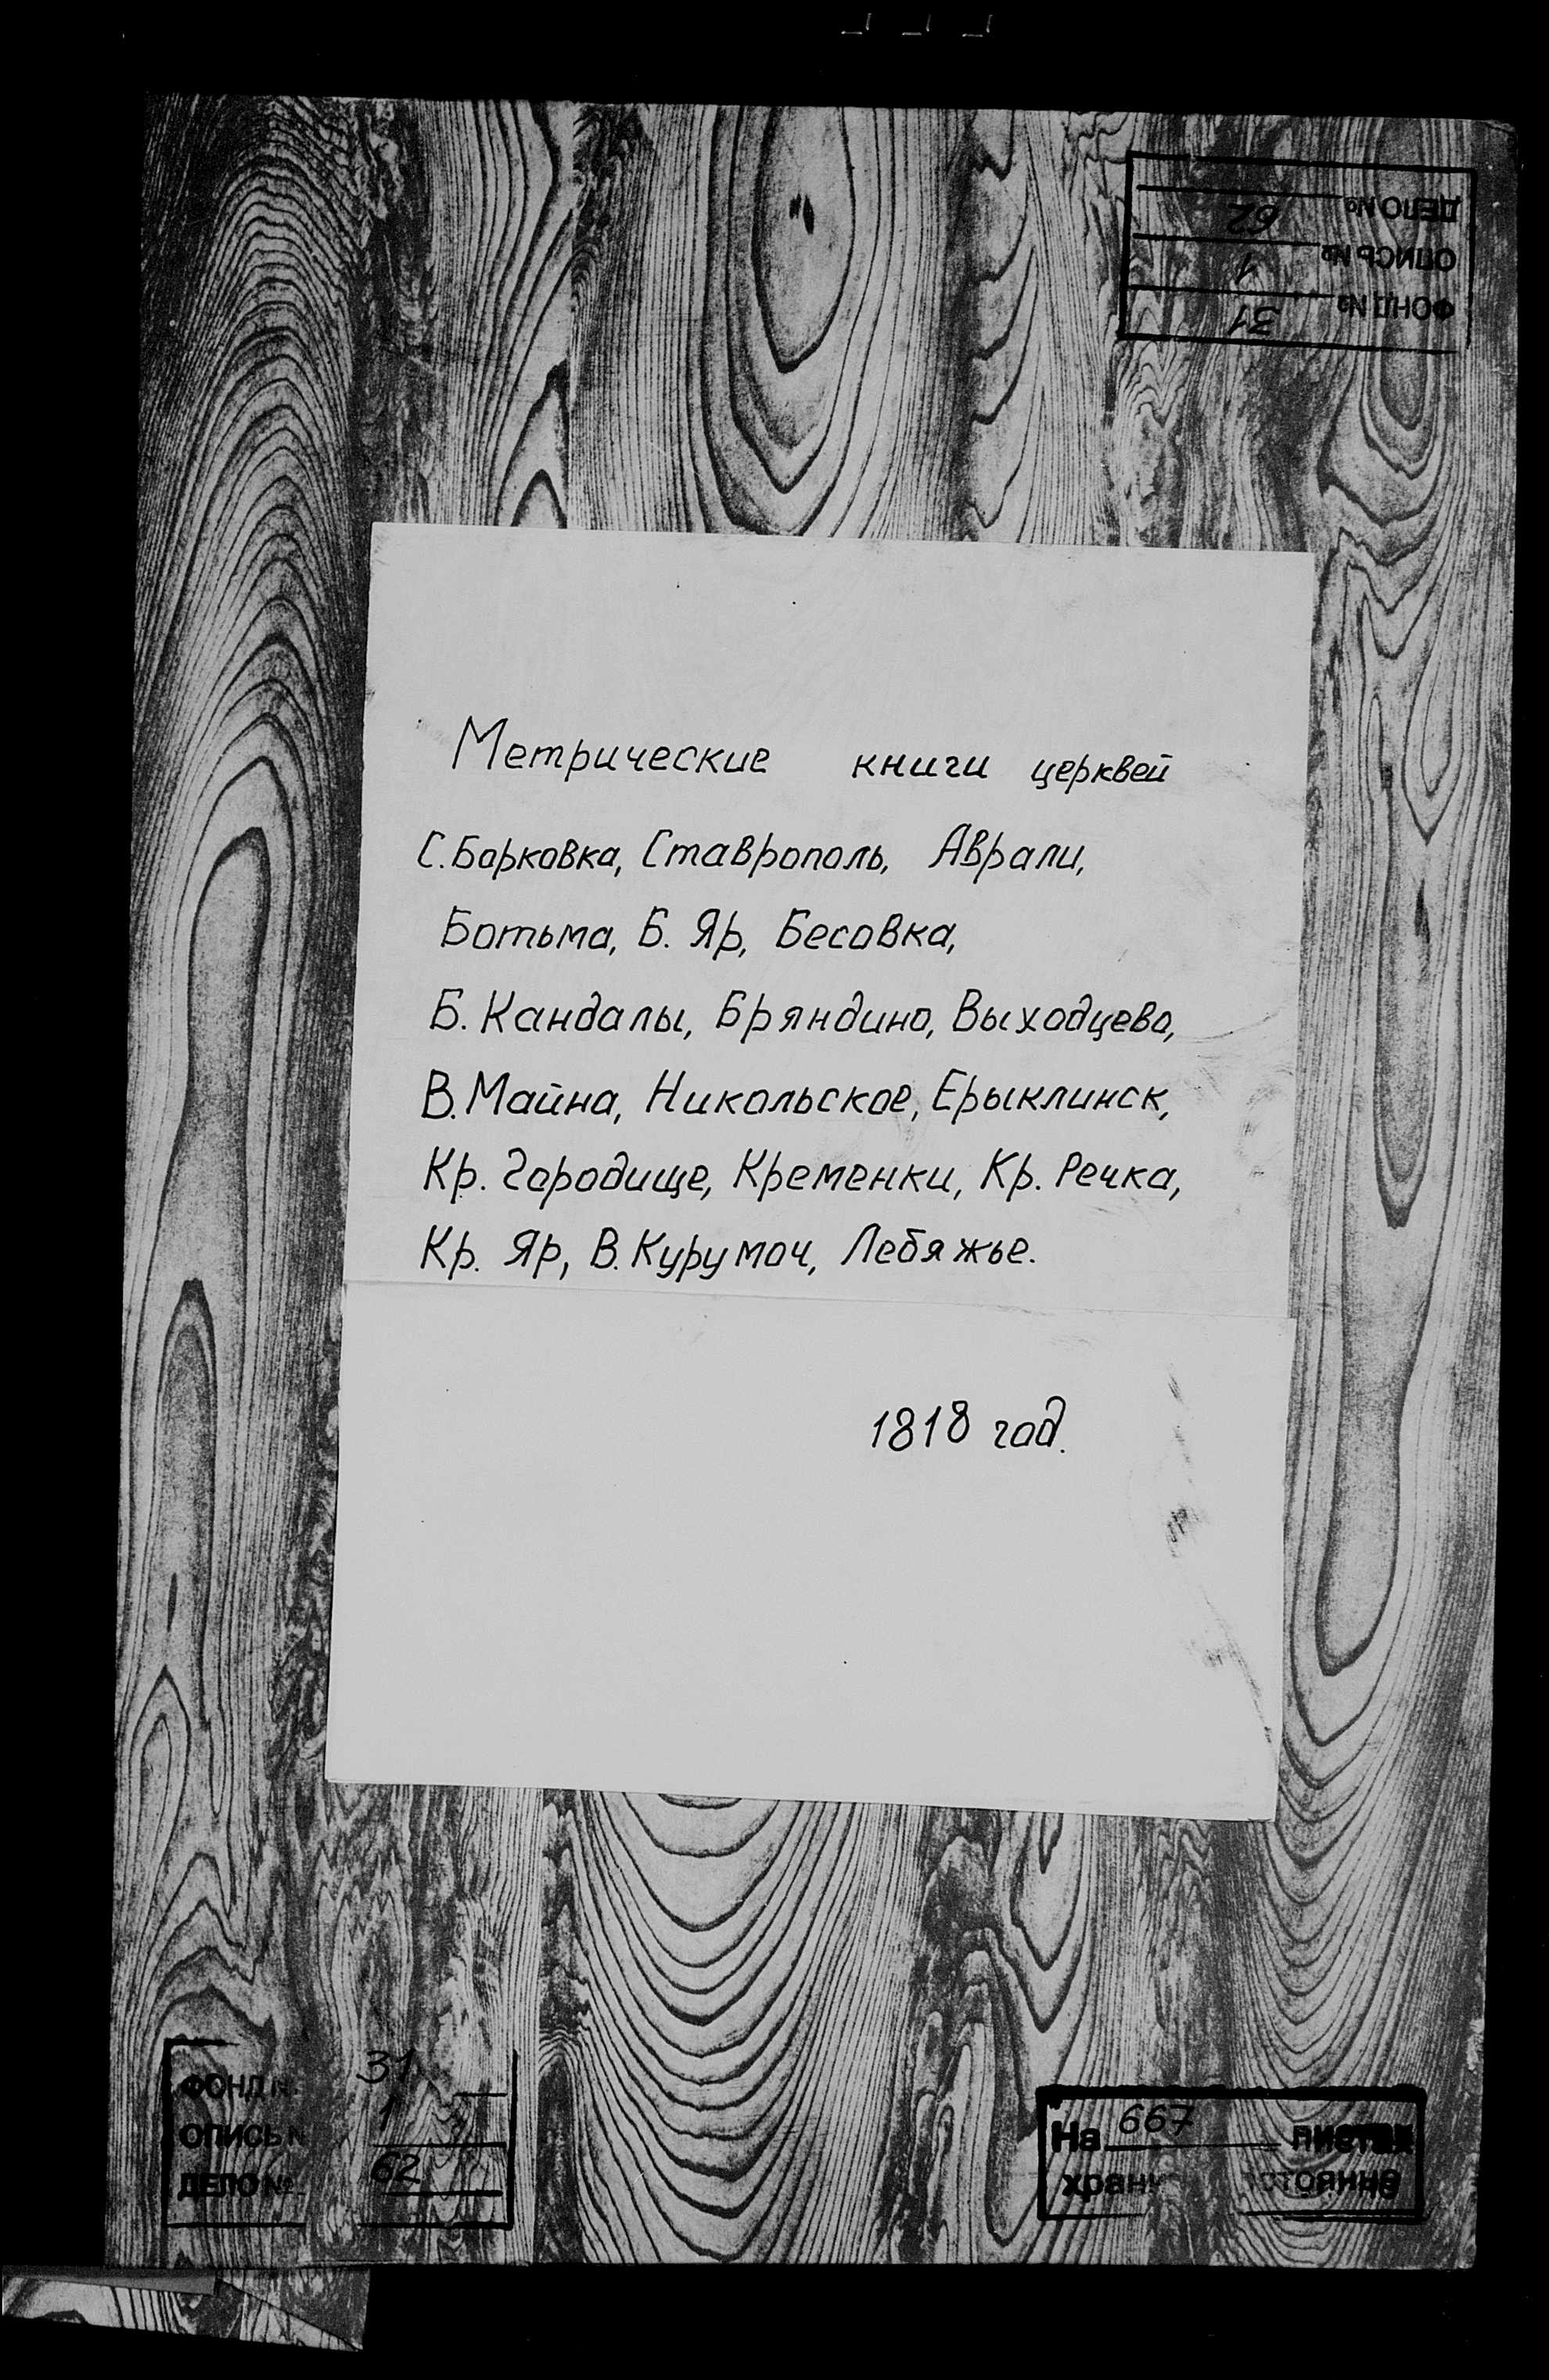 ДЕЛО № 62
ОПИСЬ № 1
ФОНД № 31
Метрические книги церквей
С. Борковка, Ставрополь, Аврали,
Ботьма, Б. Яр, Бесовка,
Б. Кандалы, Бряндино, Выходцево,
В. Майна, Никольское, Ерыклинск,
Кр. Городище, Кременки, Кр. Речка,
Кр. Яр, В. Курумоч, Лебяжье.
1818 год.
ФОНД № 31
ОПИСЬ № 1
ДЕЛО № 62
На 667 листах